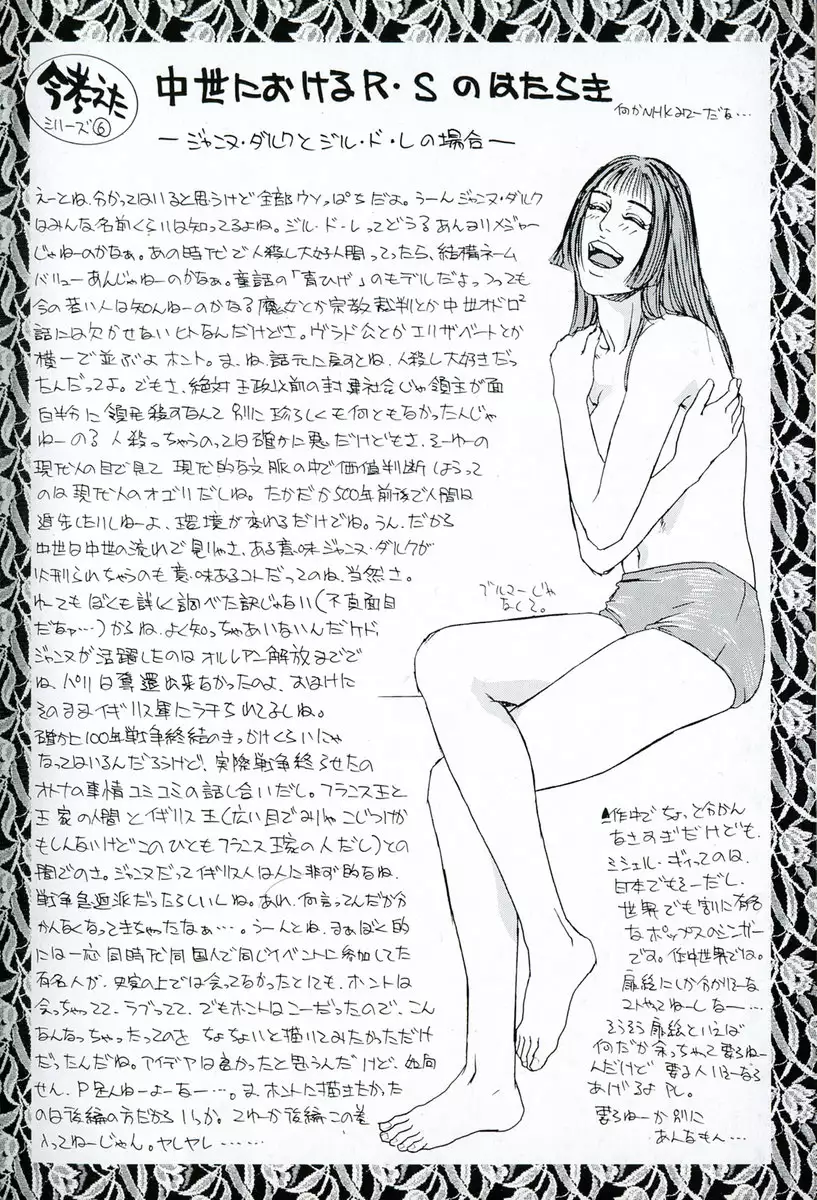 今考えた
シリーズ⑥
中世におけるR・Sのはたらき
何かNHKみてーだな…
―ジャンヌ・ダルクとジル・ド・レの場合―
えーとね、分かってはいると思うけど全部ウソっぱちだよ。うーんジャンヌ・ダルク
はみんな名前くらいは知ってるよね。ジル・ド・レってどうなあんまりメジャー
じゃねーのかなぁ。あの時代で人殺し大好人間っていったら、結構ネーム
バリューあんじゃねーのかなぁ。童話の「青ひげ」のモデルだよっつっても
今の若い人は知んねーのかなる魔女とか宗教裁判とか中世オドロ²
話には欠かせないヒトなんだけどさ。ヴラド公とかエリザベートとか
横一で並ぶよホント。ま、ね、話元に戻すとね、人殺し大好きだっ
たんだってよ。でもさ、絶対王政以前の封建社会じゃ領主が面
白半分に領民殺すなんて別に珍らしくも何ともなかったんじゃ
ねーのる人殺っちゃうのっては確かに悪だけどもさ、そーゆーの
現代人の目で見て現代的な文脈の中で価値判断しようって
のは現代人のオゴリだしね。たかだか500年前後で人間は
進歩したりしねーよ、環境が変わるだけでね。うん、だから
中世は中世の流れで見りゃさ、ある意味ジャンヌ・ダルクが
火刑られちゃうのも意味あるコトだってのね、当然さ。
れーてもぼくも詳しく調べた訳じゃない(不真面目
だなァ…)からね、よく知っちゃあいないんだケド、
ジャンヌが活躍したのはオルレアン解放までで
ね、パリは奪還出来なかったのよ、おまけに
そのままイギリス軍にラチられてるしね。
確かに100年戦争終結のきっかけくらいにゃ
なってはいるんだろうけど、実際戦争終らせたの
オトナの事情コミコミの話し合いだし。フランス王と
王家の人間とイギリス王(広い目でみりゃこじつけか
もしんないけどこのひともフランス王家の人だし)との
間でのさ。ジャンヌだってイギリス人は人に非ず的なね、
戦争急進派だったらしいしね。あれ、何言ってんだか分
かんなくなってきちゃったなぁ…。うーんとね、まぁぼく的
には一応同時代同国人で同じイベントに参加してた
有名人が、史実の上では会ってなかったとしても、ホントは
会っちゃってて、ラブってて、でもホントはこーだったので、こん
なんなっちゃったってのを ちょちょいと描いてみたかっただけ
だったんだね。アイデアは良かったと思うんだけど、如何
せん、P足んねーよーなー…。ま、ホントに描きたかった
のは後編の方だからいっか。てゆーか後編この差
入ってねーじゃん。ヤレヤレ……
ブルマーじゃ
なくて。
▲作中でちょっと分かん
なさすぎだけども、
ミシェル・ギィってのは、
日本でもそーだし、
世界でも割に有名
なポップスのシンガー
です。作中世界では。
扉絵にしか分かりそーな
コトやってねーしなー…
そうそう扉絵といえば
何だか余っちゃて要らねー
んだけど 要る人いるなら
あげるよPL。
要らねーか別に
あんなもん…